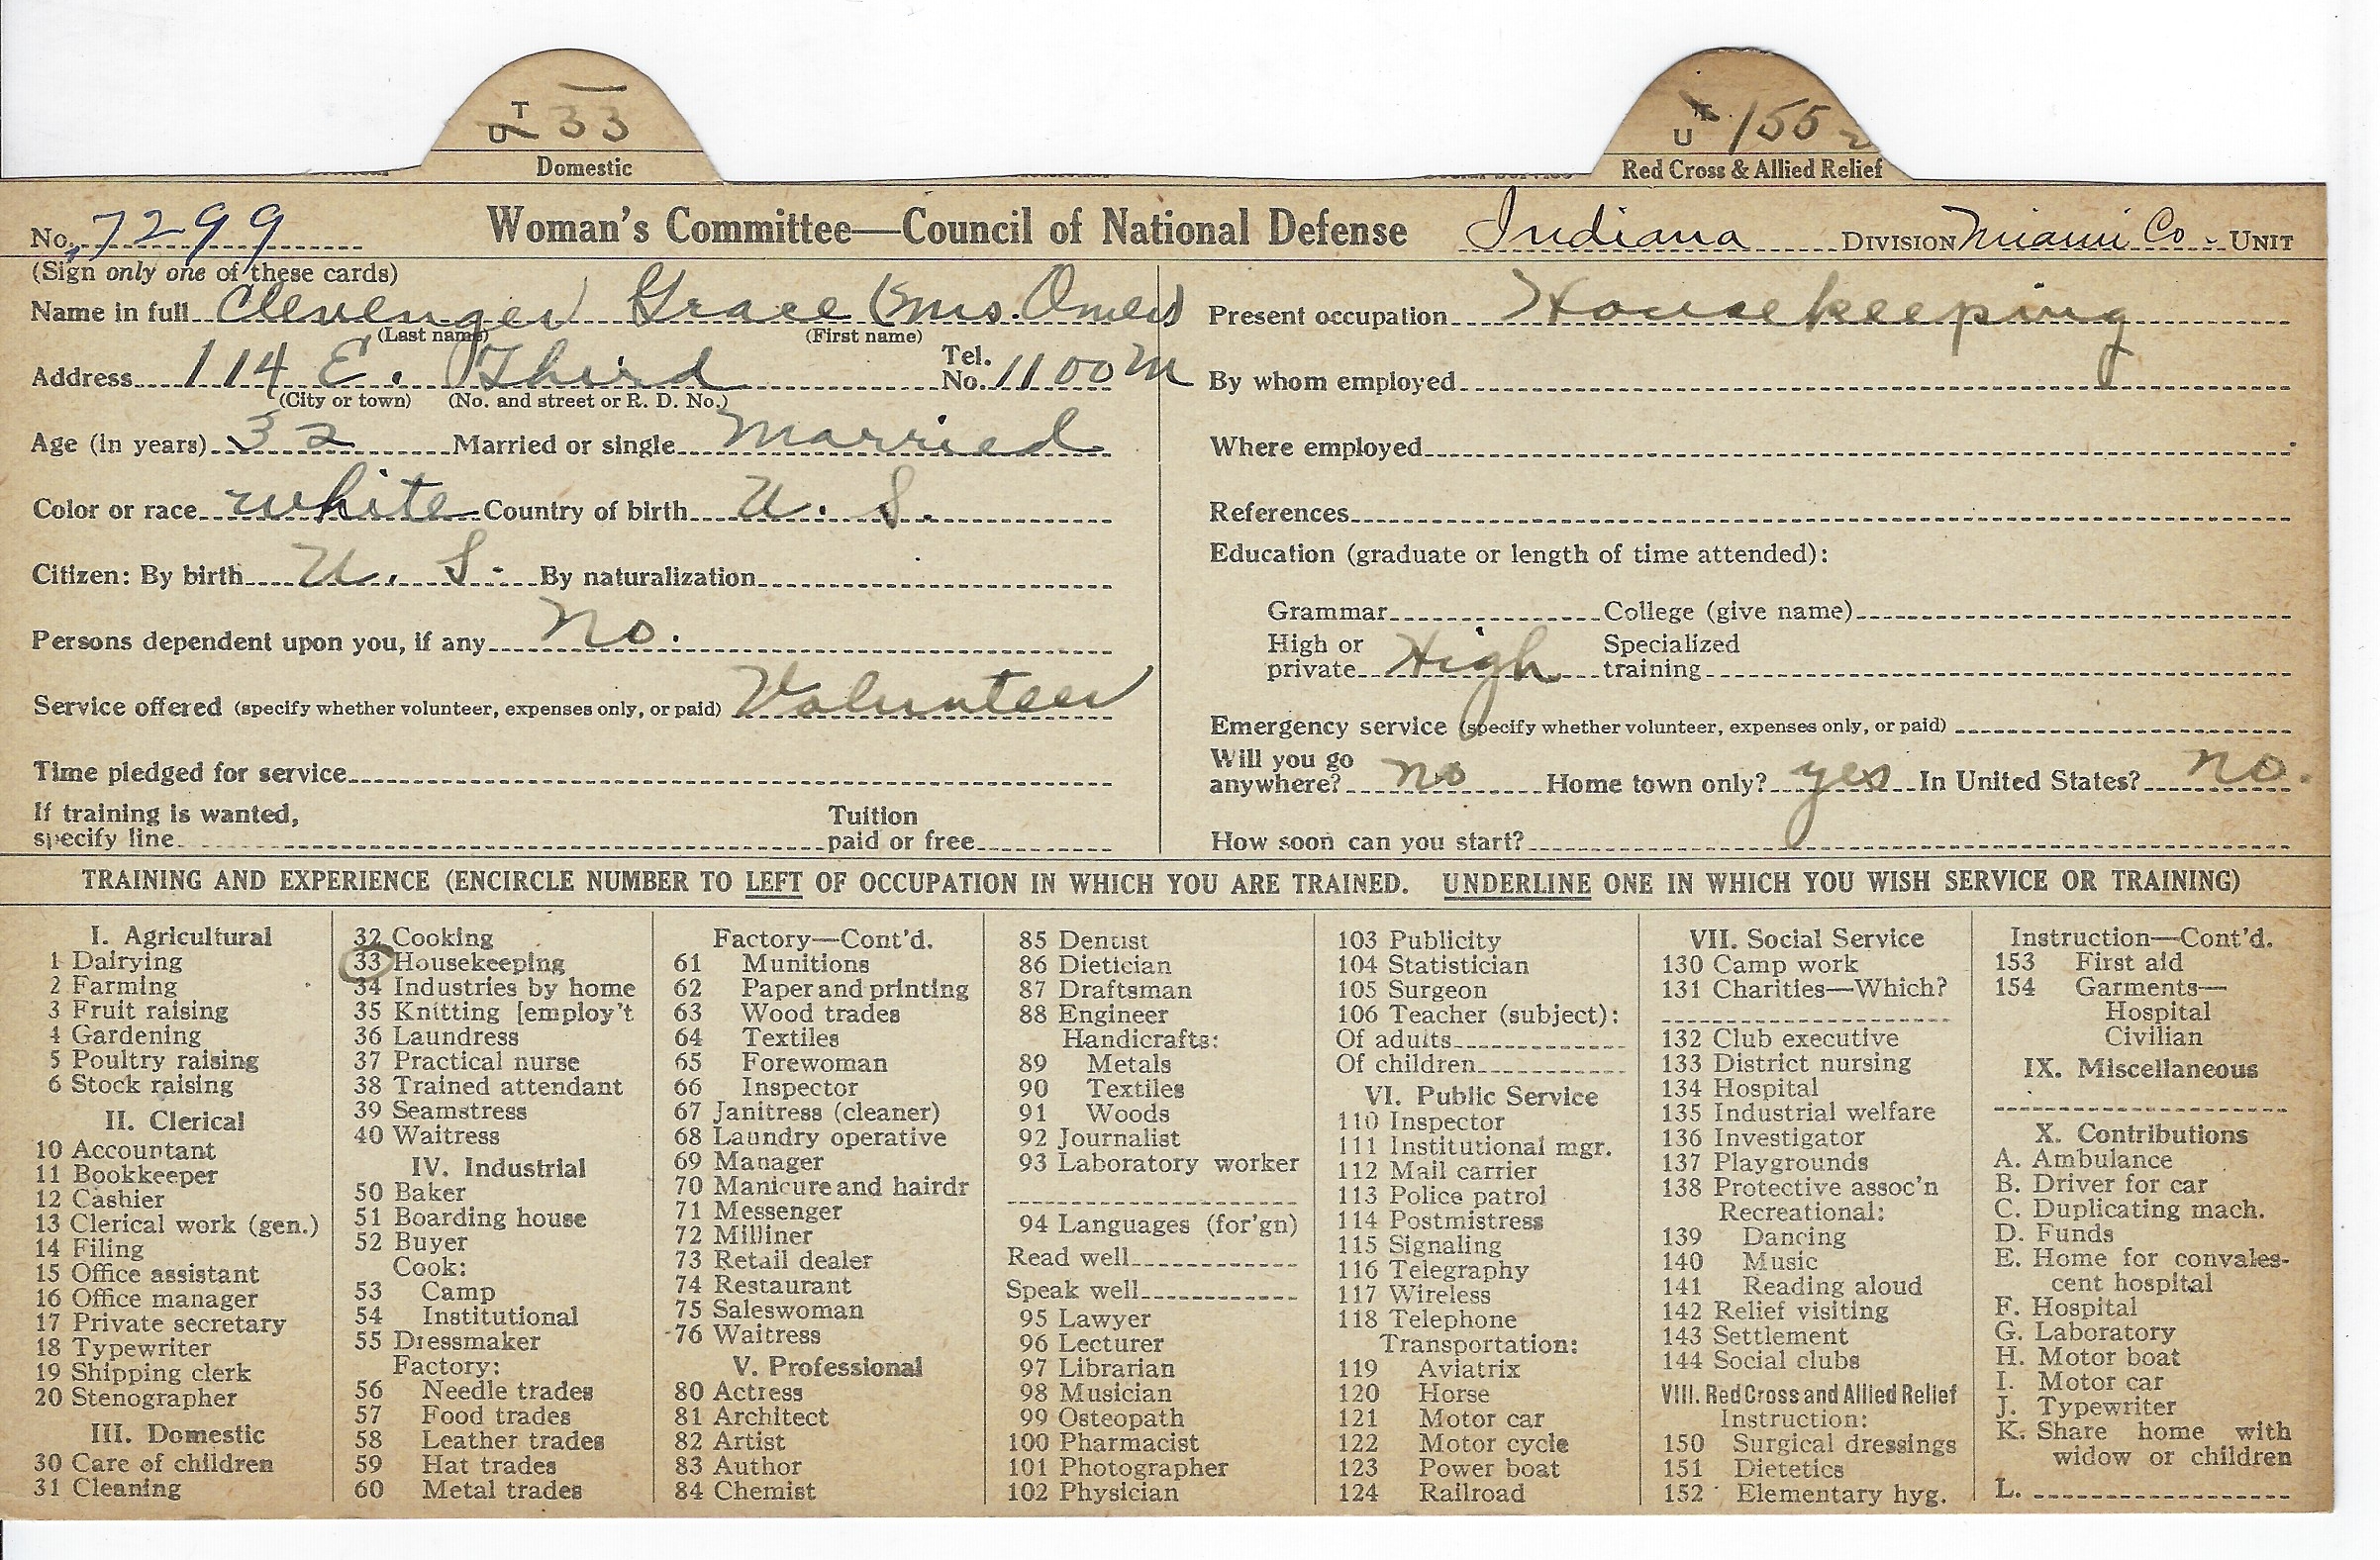 T
U 33
Domestic
U 155
Red Cross & Allied Relief
No. 7299
Woman's Committee—Council of National Defense
Indiana DIVISION Miami Co. UNIT
(Sign only one of these cards)
Name in full Clevenger Grace (Mrs. Omer)
(Last name) (First name)
Address 114 E. Third Tel. No. 1100 M
(City or town) (No. and street or R. D. No.)
Age (in years) 32 Married or single Married
Color or race white Country of birth U. S.
Citizen: By birth U. S. By naturalization
Persons dependent upon you, if any No.
Service offered (specify whether volunteer, expenses only, or paid) Volunteer
Time pledged for service
If training is wanted,
specify line
Tuition
paid or free
Present occupation Housekeeping
By whom employed
Where employed
References
Education (graduate or length of time attended):
Grammar College (give name)
High or
private High
Specialized
training
Emergency service (specify whether volunteer, expenses only, or paid)
Will you go
anywhere? no Home town only? yes In United States? no.
How soon can you start?
TRAINING AND EXPERIENCE (ENCIRCLE NUMBER TO LEFT OF OCCUPATION IN WHICH YOU ARE TRAINED. UNDERLINE ONE IN WHICH YOU WISH SERVICE OR TRAINING)
I. Agricultural
1 Dairying
2 Farming
3 Fruit raising
4 Gardening
5 Poultry raising
6 Stock raising
II. Clerical
10 Accountant
11 Bookkeeper
12 Cashier
13 Clerical work (gen.)
14 Filing
15 Office assistant
16 Office manager
17 Private secretary
18 Typewriter
19 Shipping clerk
20 Stenographer
III. Domestic
30 Care of children
31 Cleaning
32 Cooking
33 Housekeeping
34 Industries by home
35 Knitting [employ't
36 Laundress
37 Practical nurse
38 Trained attendant
39 Seamstress
40 Waitress
IV. Industrial
50 Baker
51 Boarding house
52 Buyer
Cook:
53 Camp
54 Institutional
55 Dressmaker
Factory:
56 Needle trades
57 Food trades
58 Leather trades
59 Hat trades
60 Metal trades
Factory—Cont'd.
61 Munitions
62 Paper and printing
63 Wood trades
64 Textiles
65 Forewoman
66 Inspector
67 Janitress (cleaner)
68 Laundry operative
69 Manager
70 Manicure and hairdr
71 Messenger
72 Milliner
73 Retail dealer
74 Restaurant
75 Saleswoman
76 Waitress
V. Professional
80 Actress
81 Architect
82 Artist
83 Author
84 Chemist
85 Dentist
86 Dietician
87 Draftsman
88 Engineer
Handicrafts:
89 Metals
90 Textiles
91 Woods
92 Journalist
93 Laboratory worker
94 Languages (for'gn)
Read well
Speak well
95 Lawyer
96 Lecturer
97 Librarian
98 Musician
99 Osteopath
100 Pharmacist
101 Photographer
102 Physician
103 Publicity
104 Statistician
105 Surgeon
106 Teacher (subject):
Of adults
Of children
VI. Public Service
110 Inspector
111 Institutional mgr.
112 Mail carrier
113 Police patrol
114 Postmistress
115 Signaling
116 Telegraphy
117 Wireless
118 Telephone
Transportation:
119 Aviatrix
120 Horse
121 Motor car
122 Motor cycle
123 Power boat
124 Railroad
VII. Social Service
130 Camp work
131 Charities—Which?
132 Club executive
133 District nursing
134 Hospital
135 Industrial welfare
136 Investigator
137 Playgrounds
138 Protective assoc'n
Recreational:
139 Dancing
140 Music
141 Reading aloud
142 Relief visiting
143 Settlement
144 Social clubs
VIII. Red Cross and Allied Relief
Instruction:
150 Surgical dressings
151 Dietetics
152 Elementary hyg.
Instruction—Cont'd.
153 First aid
154 Garments—
Hospital
Civilian
IX. Miscellaneous
X. Contributions
A. Ambulance
B. Driver for car
C. Duplicating mach.
D. Funds
E. Home for convales-
cent hospital
F. Hospital
G. Laboratory
H. Motor boat
I. Motor car
J. Typewriter
K. Share home with
widow or children
L.